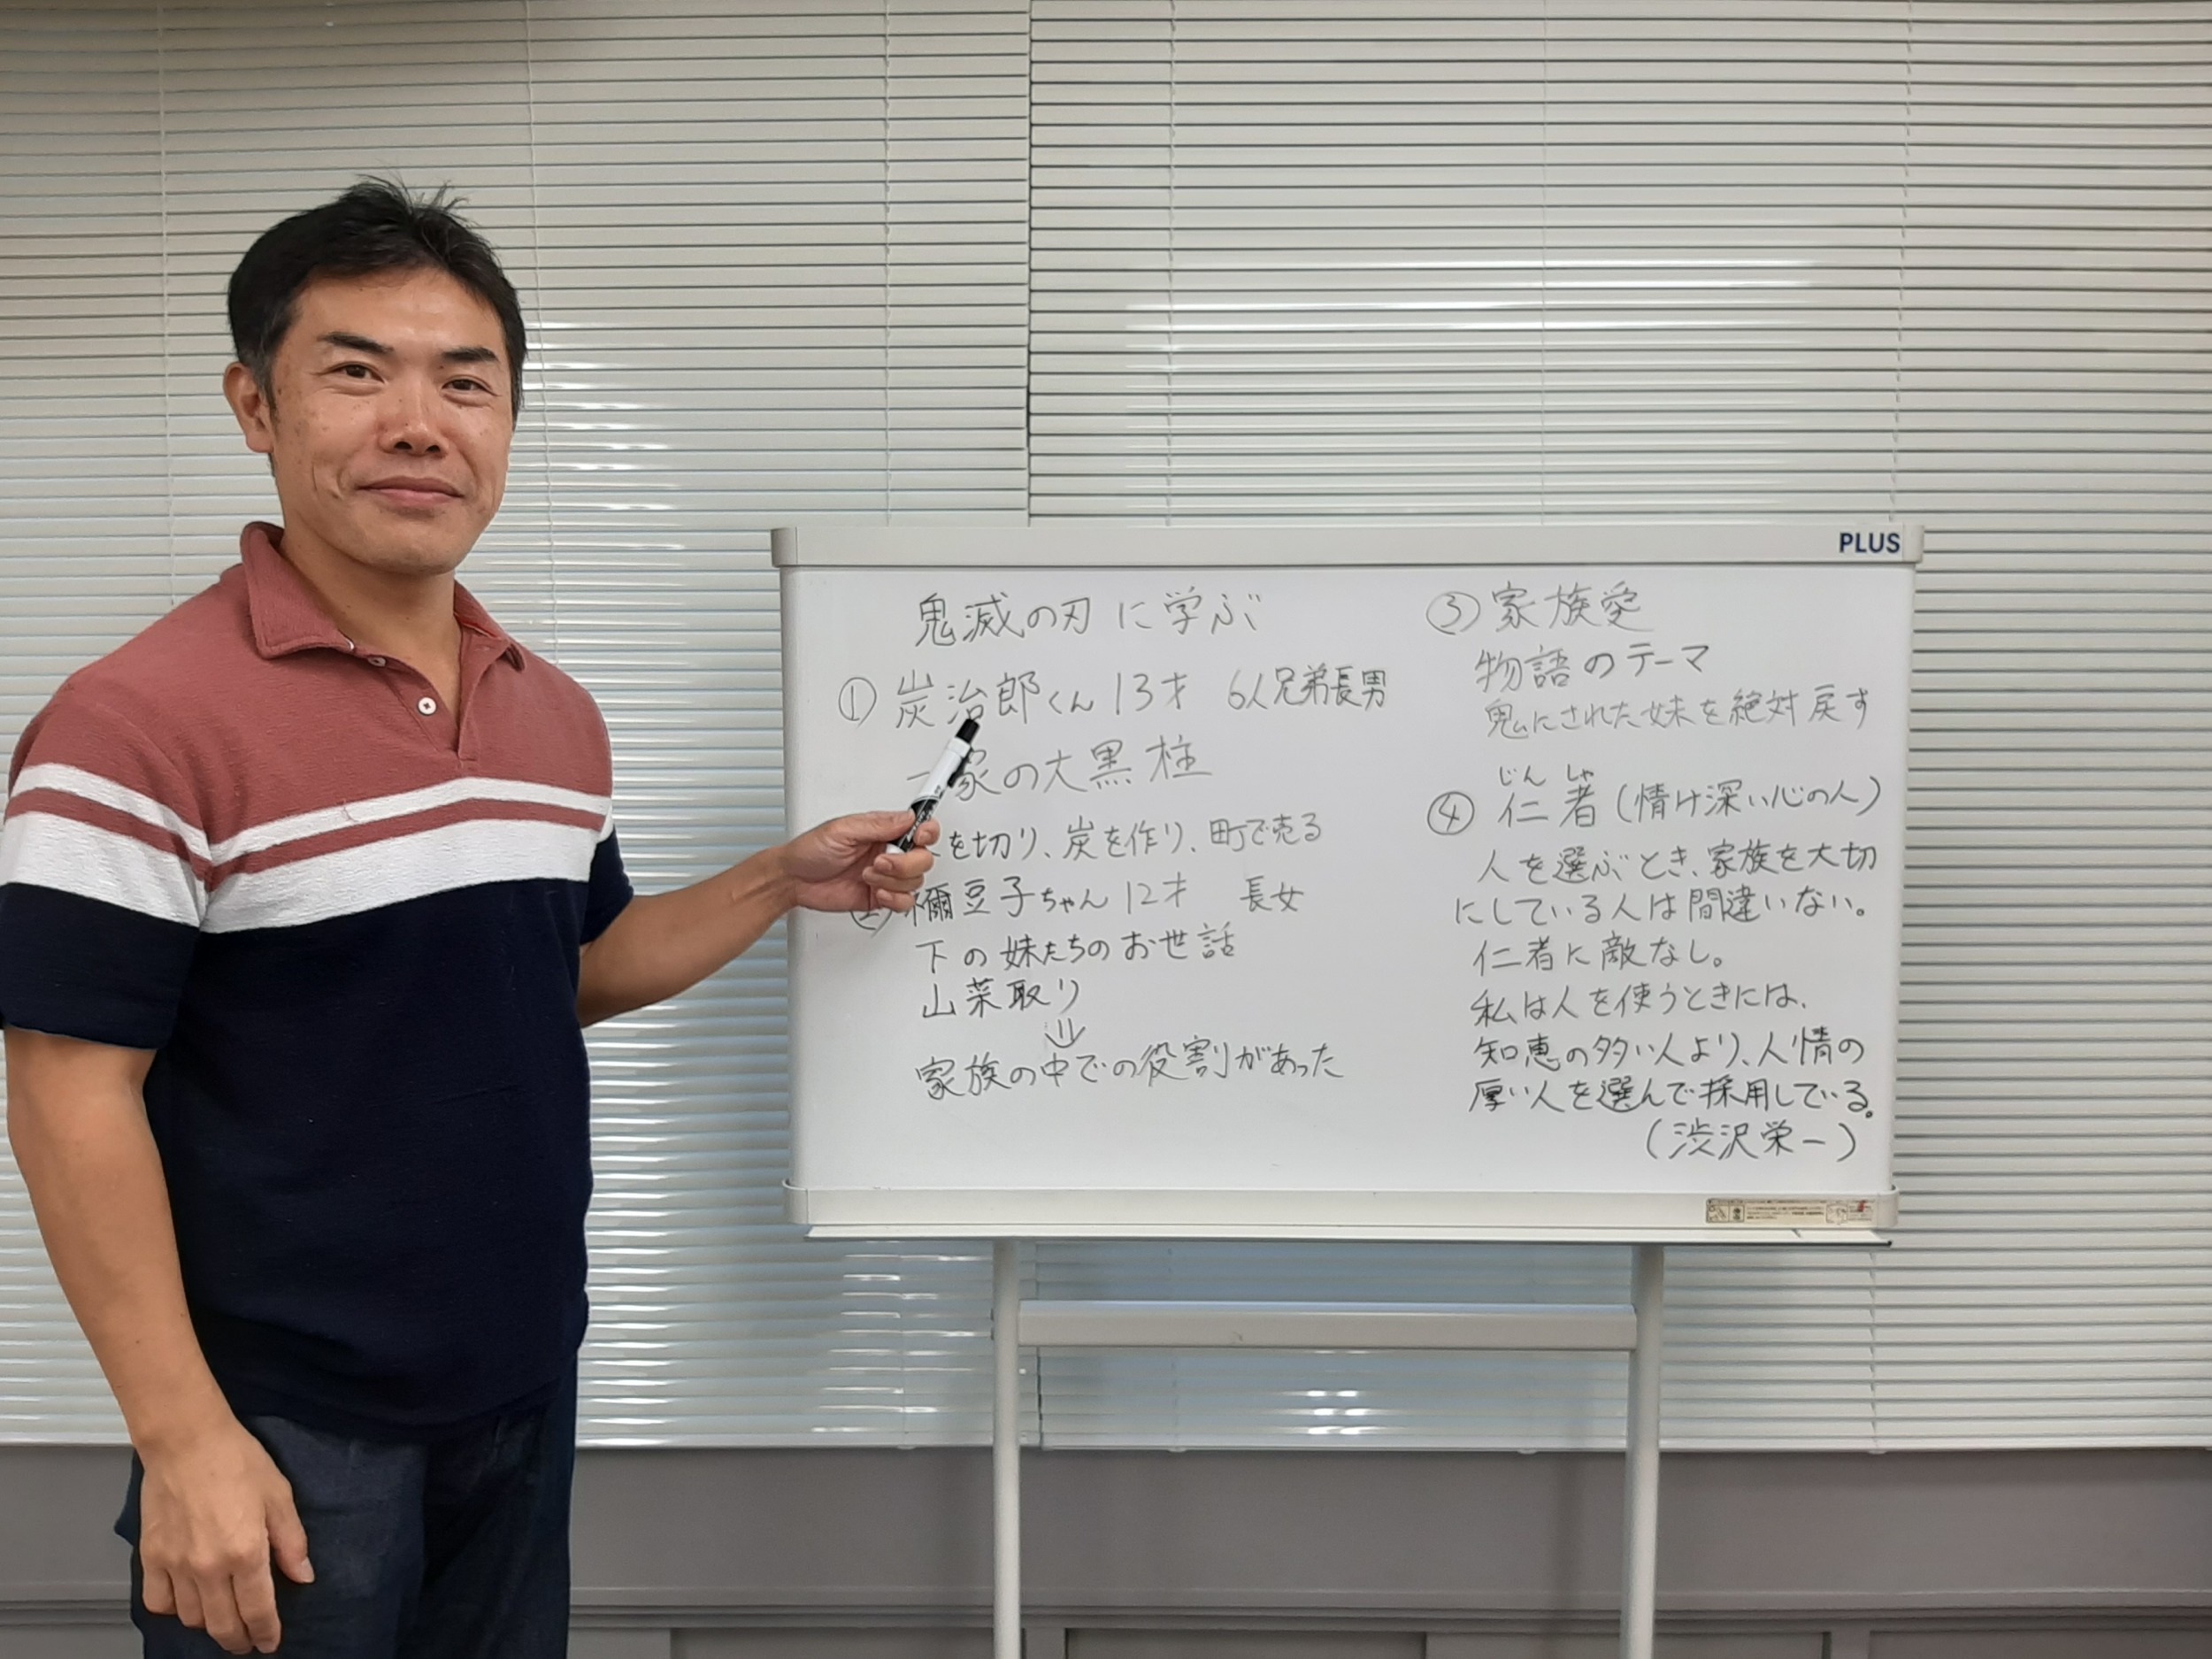 PLUS
鬼滅の刃に学ぶ
① 炭治郎くん 13才 6人兄弟長男
一家の大黒柱
を切り、炭を作り、町で売る
② 禰豆子ちゃん 12才 長女
下の妹たちのお世話
山菜取り
⇓
家族の中での役割があった
③ 家族愛
物語のテーマ
鬼にされた妹を絶対戻す
じん しゃ
④ 仁者（情け深い心の人）
人を選ぶとき、家族を大切
にしている人は間違いない。
仁者に敵なし。
私は人を使うときには、
知恵の多い人より、人情の
厚い人を選んで採用している。
（渋沢栄一）